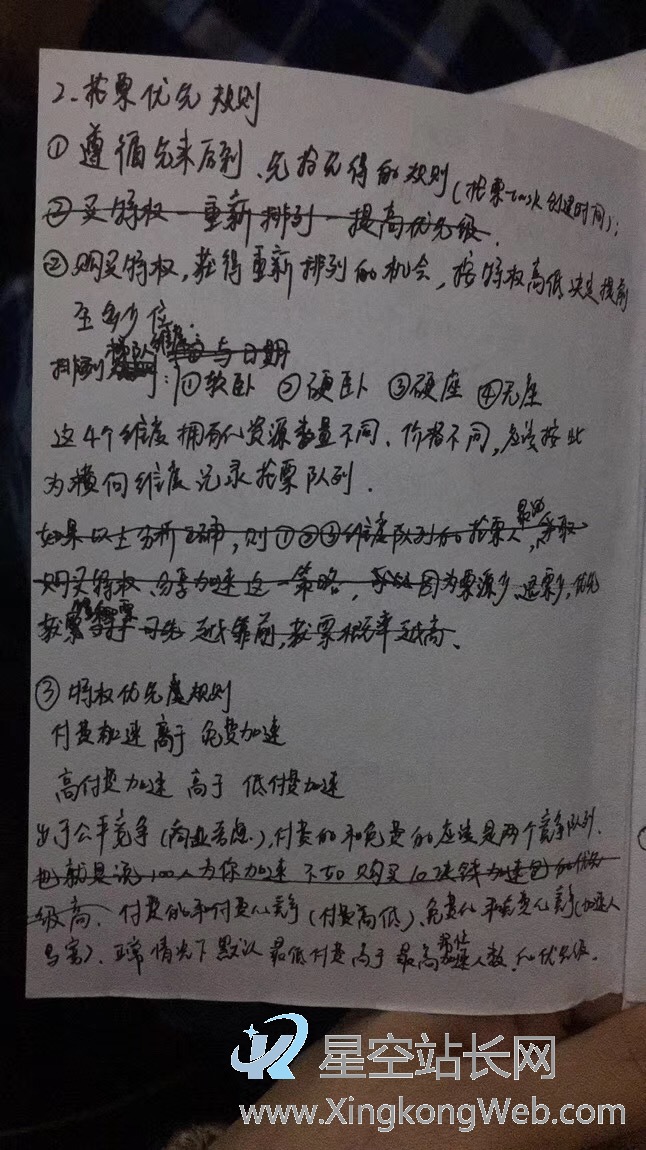 2. 抢票优先规则
① 遵循先来后到、先抢先得的规则(抢票task创建时间);
② 买特权—重新排列—提高优先级.
② 购买特权,获得重新排列的机会,按特权高低决定提前
至多少位.
排列 维度: 与日期
:①软卧 ②硬卧 ③硬座 ④无座
这4个维度拥有的资源数量不同、价格不同,应该按此
为横向维度记录抢票队列.
如果以上分析正确,则①②③维度队列的抢票人,争取
购买特权、分享加速这一策略,因为票源少、退票少,优先
获票 越靠前,获票概率越高.
③ 特权优先度规则
付费加速 高于 免费加速
高付费加速 高于 低付费加速
出于公平竞争(商业考虑),付费的和免费的应该是两个竞争队列.
也就是说100人为你加速 不如购买10块钱加速包的优先
级高. 付费的和付费的竞争(付费高低)、免费的和免费的竞争(加速人
多寡). 正常情况下默认最低付费高于最高加速人数的优先级.
星空站长网
www.XingkongWeb.com